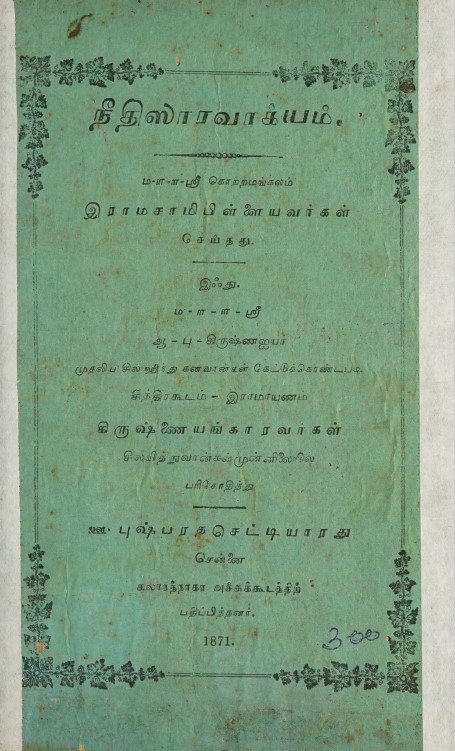 நீதிஸாரவாக்யம்.
ம-ா-ா-ஸ்ரீ கொற்றமங்கலம்
இராமசாமிபிள்ளையவர்கள்
செய்தது.
இஃது.
ம - ா - ா - ஸ்ரீ
ஆ - பு - கிருஷ்ணஐயர்
முதலிய சில ஹிந்து கனவான்கள் கேட்டுக்கொண்டபடி
சித்திரகூடம் - இராமாயணம்
கிருஷ்ணையங்காரவர்கள்
சிலவித்துவான்கள்முன்னிலையில்
பரிசோதித்து
ஊ. புஷ்பரதசெட்டியாரது
சென்னை
கலாரத்நாகர அச்சுக்கூடத்திற்
பதிப்பித்தனர்.
1871.
300